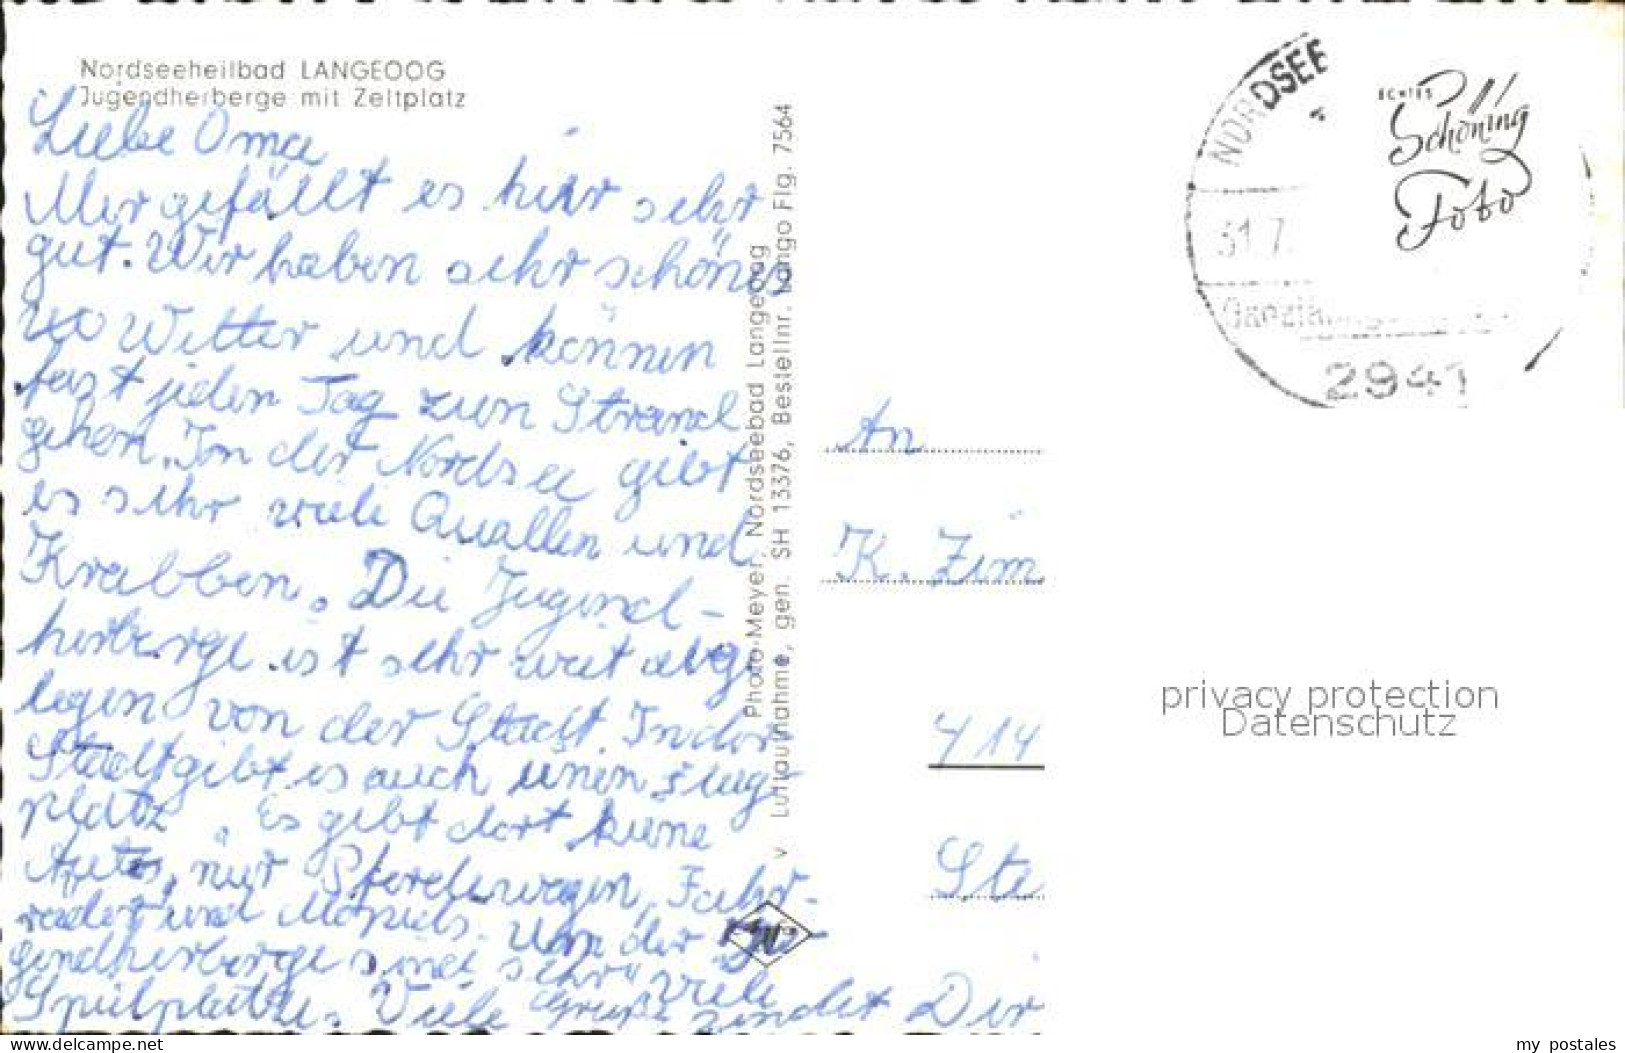 Nordseeheilbad LANGEOOG
Jugendherberge mit Zeltplatz
Liebe Oma
Mir gefällt es hier sehr
gut. Wir haben sehr schönes
Wetter und können
fast jeden Tag zum Strand
gehen. In der Nordsee gibt
es sehr viele Quallen und
Krabben. Die Jugend-
herberge ist sehr weit abge
legen von der Stadt. In der
Stadt gibt es auch einen Flug-
platz. Es gibt dort keine
Autos, nur Pferdewagen, Fahr-
räder und Mopeds. Um der Ju-
gendherberge sind sehr viele
Spielplätze. Viele Grüße sendet Dir
Photo-Meyer, Nordseebad Langeoog
v Luftaufnahme, gen. SH 13376, Bestellnr. Lango Flg. 7564
NORDSEE
31.7.
2941
ECHTES
Schöning
Foto
An
K. Zim
414
Ste
privacy protection
Datenschutz
my postales
delcampe.net